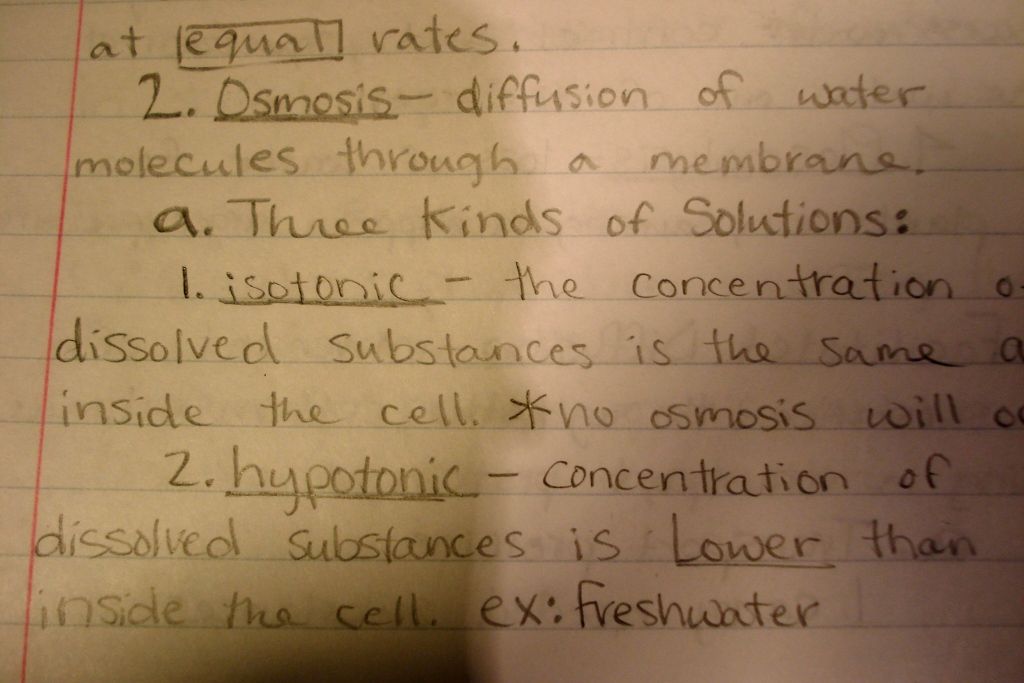 at equal rates.
2. Osmosis - diffusion of water
molecules through a membrane.
a. Three Kinds of Solutions:
1. isotonic - the concentration
dissolved substances is the same
inside the cell. *no osmosis will
2. hypotonic - concentration of
dissolved substances is Lower than
inside the cell. ex: freshwater